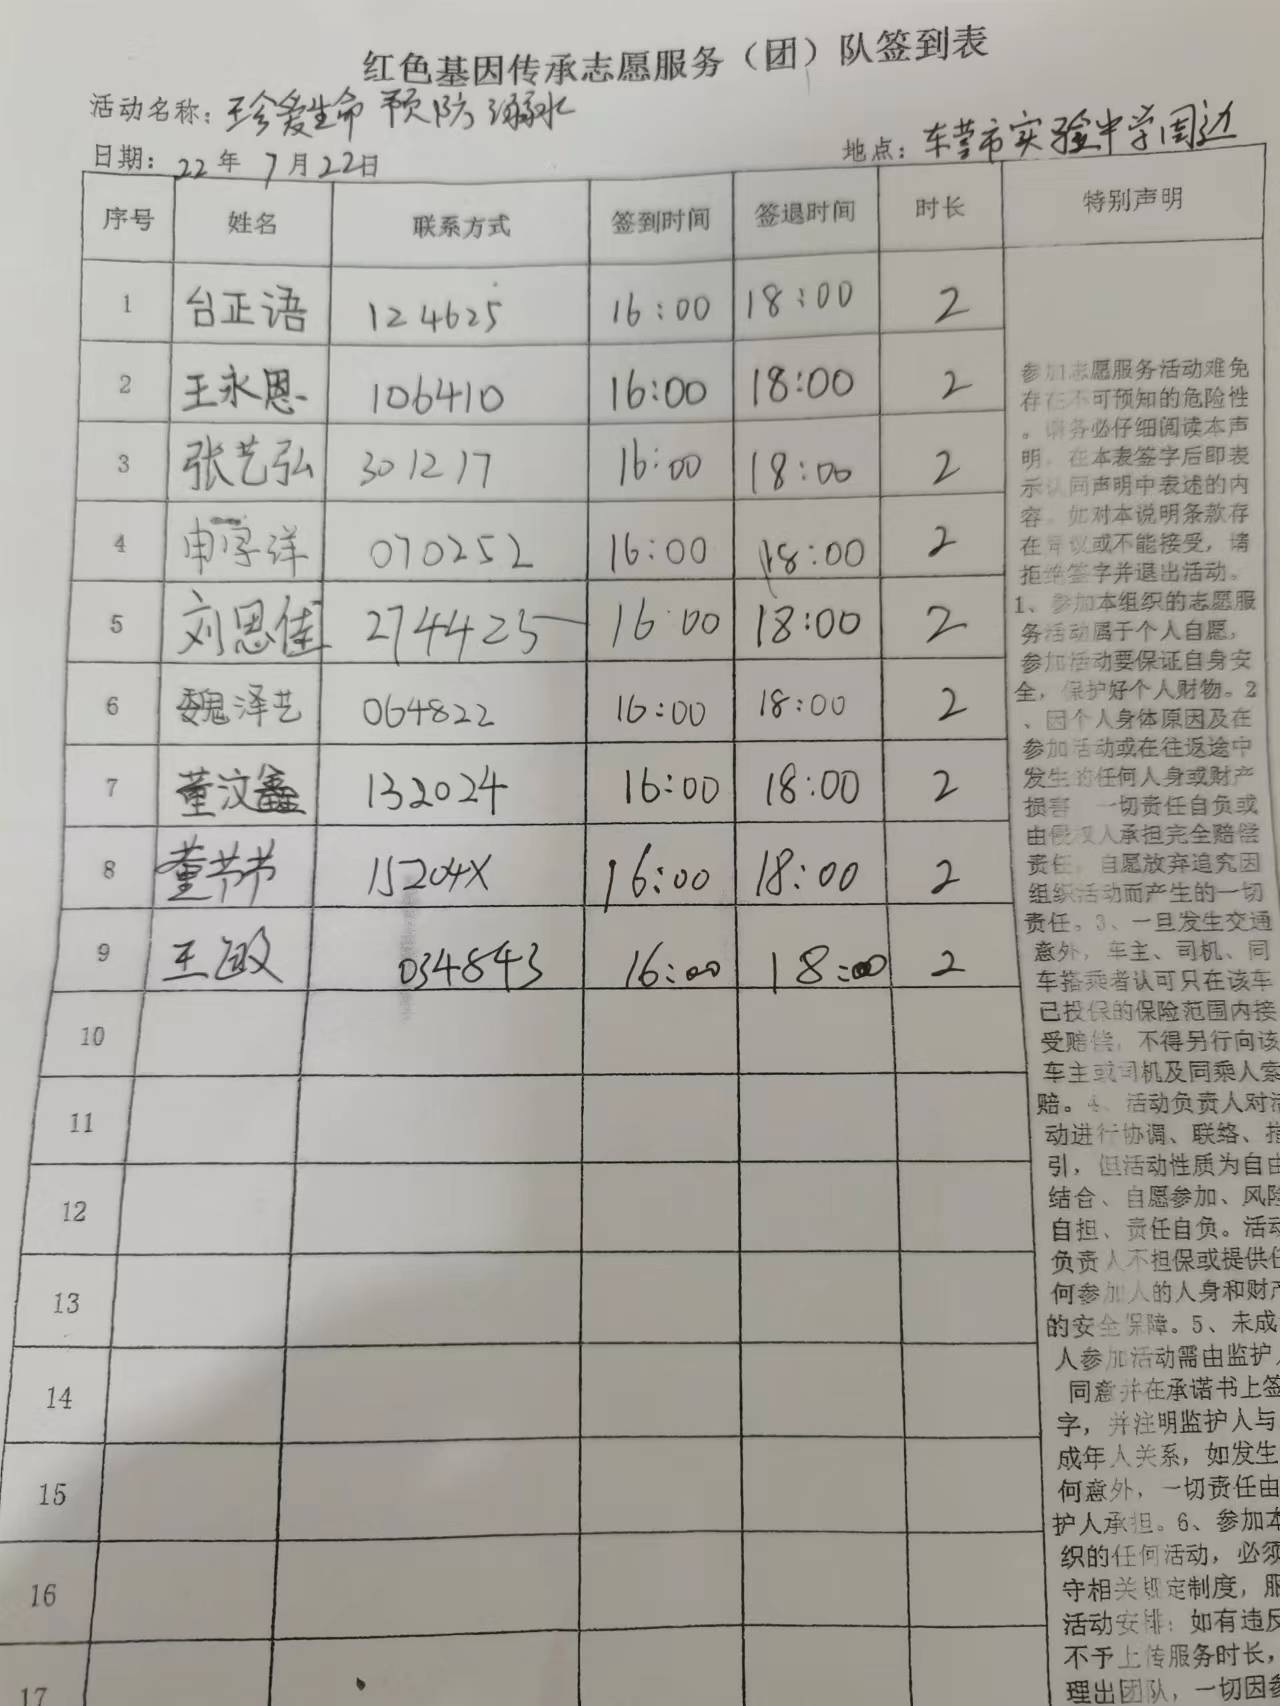 红色基因传承志愿服务（团）队签到表
活动名称：珍爱生命 预防溺水
日期：22年7月22日
地点：东营市实验中学周边
序号 姓名 联系方式 签到时间 签退时间 时长 特别声明
1 台正语 124625 16:00 18:00 2
2 王永恩 106410 16:00 18:00 2
3 张艺弘 301217 16:00 18:00 2
4 申字洋 070252 16:00 18:00 2
5 刘思佳 274425 16:00 18:00 2
6 魏泽艺 064822 16:00 18:00 2
7 董汶鑫 132024 16:00 18:00 2
8 董节节 15204X 16:00 18:00 2
9 王敏 034843 16:00 18:00 2
10
11
12
13
14
15
16
17
参加志愿服务活动难免
存在不可预知的危险性
。请务必仔细阅读本声
明，在本表签字后即表
示认同声明中表述的内
容。如对本说明条款存
在异议或不能接受，请
拒绝签字并退出活动。
1、参加本组织的志愿服
务活动属于个人自愿，
参加活动要保证自身安
全，保护好个人财物。2
、因个人身体原因及在
参加活动或在往返途中
发生的任何人身或财产
损害 一切责任自负或
由侵权人承担完全赔偿
责任，自愿放弃追究因
组织活动而产生的一切
责任。3、一旦发生交通
意外，车主、司机、同
车搭乘者认可只在该车
已投保的保险范围内接
受赔偿，不得另行向该
车主或司机及同乘人索
赔。4、活动负责人对活
动进行协调、联络、指
引，但活动性质为自由
结合、自愿参加、风险
自担、责任自负。活动
负责人不担保或提供任
何参加人的人身和财产
的安全保障。5、未成
人参加活动需由监护人
同意并在承诺书上签
字，并注明监护人与
成年人关系，如发生
何意外，一切责任由
护人承担。6、参加本
织的任何活动，必须
守相关规定制度，服
活动安排；如有违反
不予上传服务时长，
理出团队，一切因参